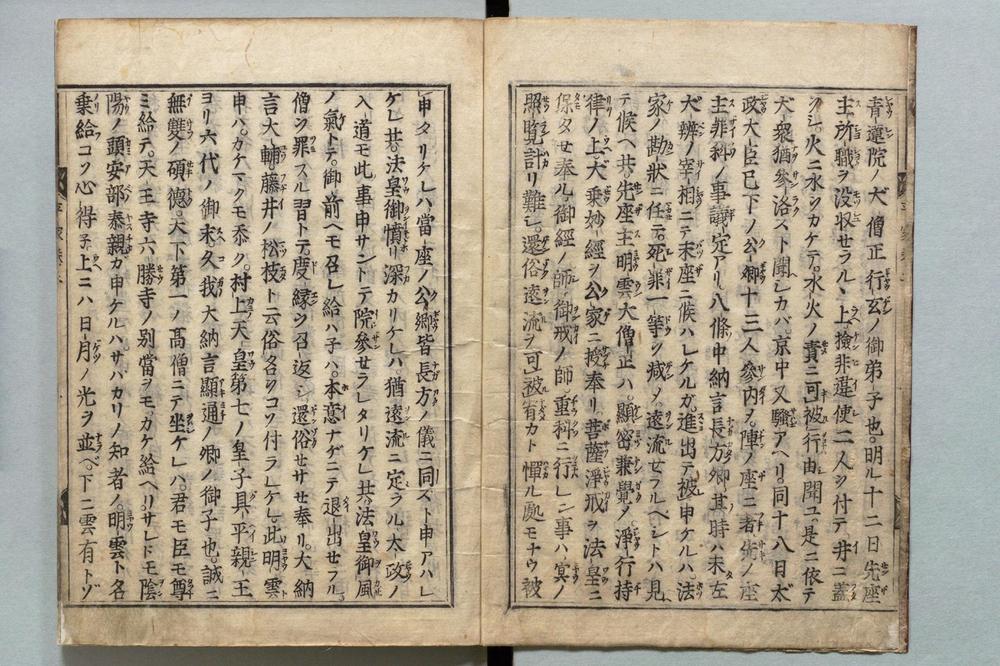 青蓮院ノ大僧正行玄ノ御弟子也。明ル十二日先座
主所職ヲ没収セラルヽ上。撿非違使二人ヲ付テ井ニ蓋
ヲシ。火ニ水ヲカケテ。水火ノ責ニ可被行由聞ユ。是ニ依テ
大衆猶參洛スト聞シカバ。京中又騒アヘリ。同十八日太
政大臣已下ノ公卿十三人參内ヲ。陣ノ座ニ着。先ノ座
主罪科ノ事議定アリ。八條中納言長方卿其時ハ未左
大辨ノ宰相ニテ末座ニ候ハレケルガ。進出テ被申ケルハ法
家ノ勘狀ニ任テ。死罪一等ヲ減メ遠流セラルヘシトハ見
テ候ヘ共。先座主明雲大僧正ハ。顯密兼學ノ淨行持
律ノ上。大乗妙經ヲ公家ニ授奉リ。菩薩淨戒ヲ法皇ニ
保タセ奉ル。御經ノ師御戒ノ師重科ニ行レン事ハ冥ノ
照覽計リ難シ。還俗遠流ヲ可被宥カト憚ル処モナウ被
申タリケレハ當座ノ公卿皆長方ノ儀ニ同スト申アハレ
ケレ共。法皇御憤リ深カリケレハ。猶遠流ニ定ラル太政ノ
入道モ此事申サントテ院參セラレタリケレ共。法皇御風
ノ氣トテ。御前ヘモ召レ給ハ子ハ。本意ナゲニテ退出セラル
僧ヲ罪スル習トテ。度縁ヲ召返シ。還俗セサセ奉リ。大納
言大輔藤井ノ松枝ト云俗名ヲコソ付ラレケレ。此明雲ト
申ハ。カケマクモ忝ク。村上天皇第七ノ皇子具平親王
ヨリ六代ノ御末久我大納言顯通ノ卿ノ御子也。誠ニ
無雙ノ碩德。天下第一ノ髙僧ニテ坐ケレハ。君モ臣モ尊
ミ給テ。天王寺六勝寺ノ別當ヲモカケ給ヘリ。サレドモ陰
陽ノ頭安部泰親カ申ケルハ。サハカリノ知者ノ。明雲ト名
乗給コソ心得子。上ニハ日月ノ光ヲ並ヘ。下ニ雲有トゾ